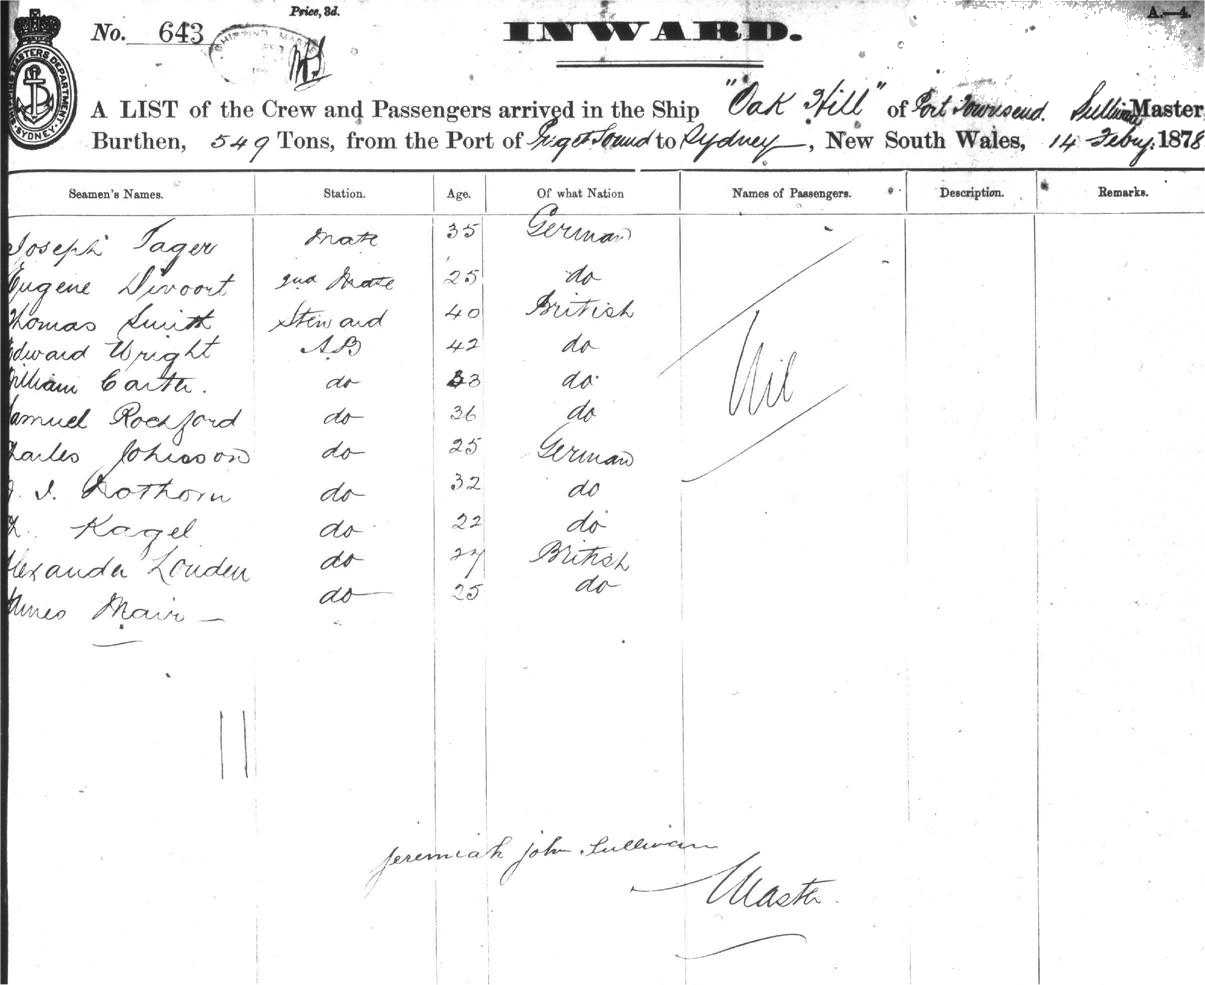 Price, 3d.
A.—4.
No. 643
INWARD.
A LIST of the Crew and Passengers arrived in the Ship "Oak Hill" of Port Townsend. Sullivan Master
Burthen, 549 Tons, from the Port of Puget Sound to Sydney, New South Wales, 14 Febry. 1878
Seamen's Names. Station. Age. Of what Nation Names of Passengers. Description. Remarks.
Joseph Tager Mate 35 German
Eugene Divoort 2nd Mate 25 do
Thomas Smith Steward 40 British
Edward Wright AB 42 do
William Carter. do 33 do
Samuel Rochford do 36 do
Charles Johnson do 25 German
do 32 do
Kagel do 22 do
Alexander Louden do 27 British
James Mair do 25 do
Nil
11
Jeremiah John Sullivan
Master